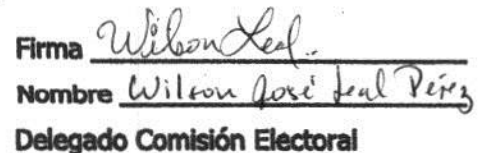 Firma Wilson Leal.
Nombre Wilson José Leal Pérez
Delegado Comisión Electoral